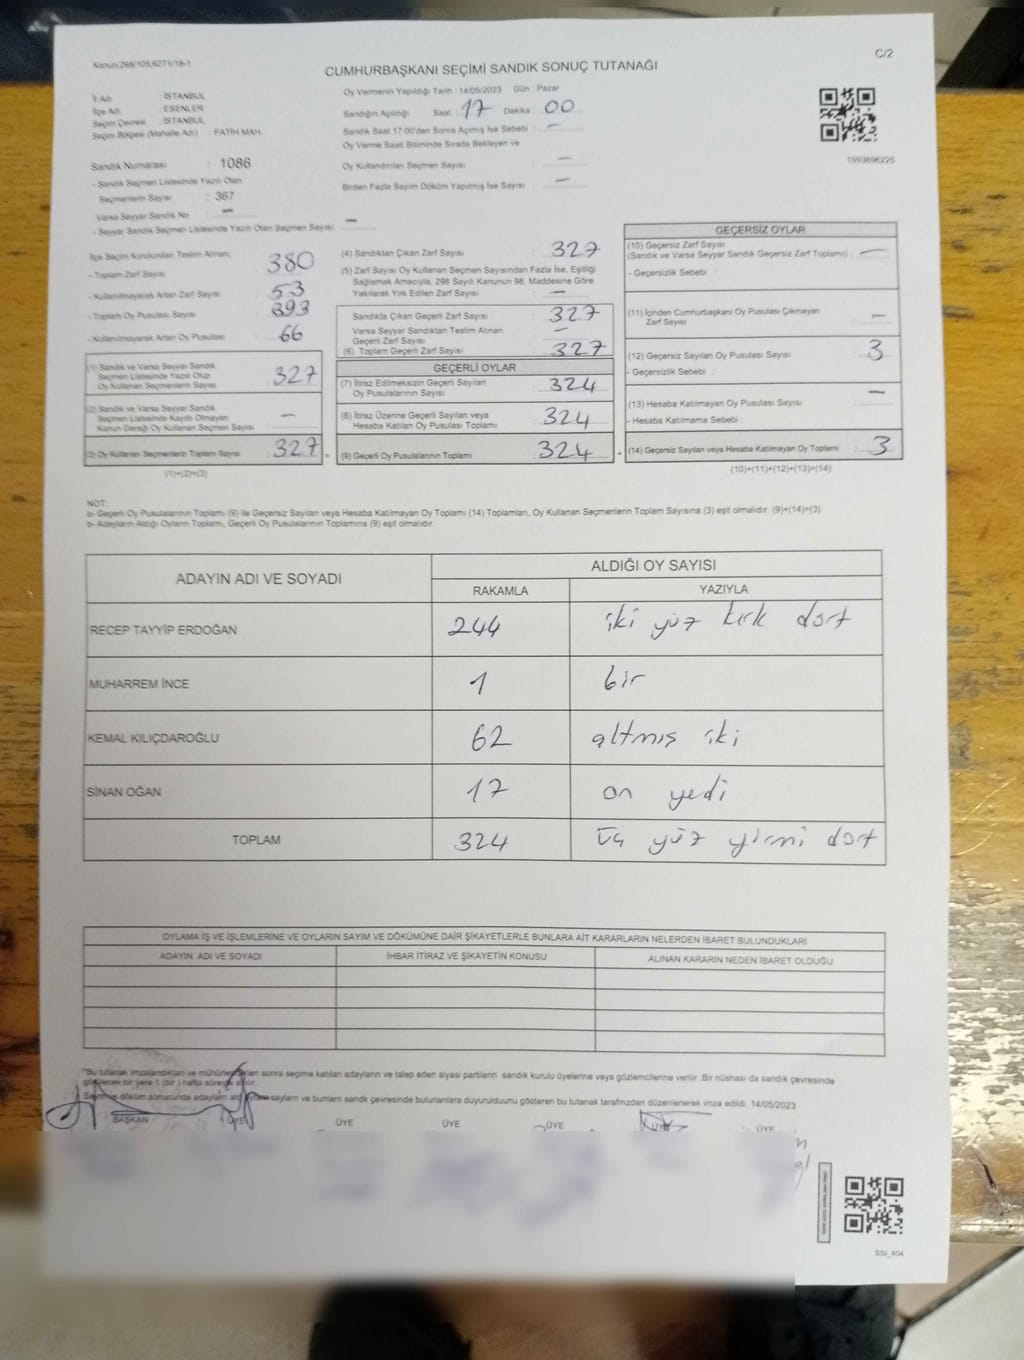 Kanun:298/105;6271/18-1
C/2
CUMHURBAŞKANI SEÇİMİ SANDIK SONUÇ TUTANAĞI
İl Adı : İSTANBUL
İlçe Adı : ESENLER
Seçim Çevresi : İSTANBUL
Seçim Bölgesi (Mahalle Adı) : FATİH MAH.
Sandık Numarası : 1086
- Sandık Seçmen Listesinde Yazılı Olan
Seçmenlerin Sayısı : 367
Varsa Seyyar Sandık No : —
- Seyyar Sandık Seçmen Listesinde Yazılı Olan Seçmen Sayısı: —
Oy Vermenin Yapıldığı Tarih : 14/05/2023 Gün : Pazar
Sandığın Açıldığı Saat : 17 Dakika : 00
Sandık Saat 17:00'den Sonra Açılmış İse Sebebi : —
Oy Verme Saati Bitiminde Sırada Bekleyen ve
Oy Kullandırılan Seçmen Sayısı : —
Birden Fazla Sayım Döküm Yapılmış İse Sayısı : —
1093696225
İlçe Seçim Kurulundan Teslim Alınan;
- Toplam Zarf Sayısı : 380
- Kullanılmayarak Artan Zarf Sayısı : 53
- Toplam Oy Pusulası Sayısı : 393
- Kullanılmayarak Artan Oy Pusulası : 66
(1) Sandık ve Varsa Seyyar Sandık
Seçmen Listesinde Yazılı Olup
Oy Kullanan Seçmenlerin Sayısı : 327
(2) Sandık ve Varsa Seyyar Sandık
Seçmen Listesinde Kayıtlı Olmayan
Kanun Gereği Oy Kullanan Seçmen Sayısı : —
(3) Oy Kullanan Seçmenlerin Toplam Sayısı : 327
(1)+(2)=(3)
(4) Sandıktan Çıkan Zarf Sayısı : 327
(5) Zarf Sayısı Oy Kullanan Seçmen Sayısından Fazla İse, Eşitliği
Sağlamak Amacıyla, 298 Sayılı Kanunun 98. Maddesine Göre
Yakılarak Yok Edilen Zarf Sayısı : —
Sandıkta Çıkan Geçerli Zarf Sayısı : 327
Varsa Seyyar Sandıktan Teslim Alınan
Geçerli Zarf Sayısı : —
(6) Toplam Geçerli Zarf Sayısı : 327
GEÇERLİ OYLAR
(7) İtiraz Edilmeksizin Geçerli Sayılan
Oy Pusulalarının Sayısı : 324
(8) İtiraz Üzerine Geçerli Sayılan veya
Hesaba Katılan Oy Pusulası Toplamı : 324
(9) Geçerli Oy Pusulalarının Toplamı : 324
GEÇERSİZ OYLAR
(10) Geçersiz Zarf Sayısı
(Sandık ve Varsa Seyyar Sandık Geçersiz Zarf Toplamı) : —
- Geçersizlik Sebebi :
(11) İçinden Cumhurbaşkanı Oy Pusulası Çıkmayan
Zarf Sayısı : —
(12) Geçersiz Sayılan Oy Pusulası Sayısı : 3
- Geçersizlik Sebebi :
(13) Hesaba Katılmayan Oy Pusulası Sayısı : —
- Hesaba Katılmama Sebebi :
(14) Geçersiz Sayılan veya Hesaba Katılmayan Oy Toplamı : 3
(10)+(11)+(12)+(13)=(14)
NOT:
a- Geçerli Oy Pusulalarının Toplamı (9) ile Geçersiz Sayılan veya Hesaba Katılmayan Oy Toplamı (14) Toplamları, Oy Kullanan Seçmenlerin Toplam Sayısına (3) eşit olmalıdır. (9)+(14)=(3)
b- Adayların Aldığı Oyların Toplamı, Geçerli Oy Pusulalarının Toplamına (9) eşit olmalıdır.
ADAYIN ADI VE SOYADI
ALDIĞI OY SAYISI
RAKAMLA YAZIYLA
RECEP TAYYİP ERDOĞAN 244 iki yüz kırk dört
MUHARREM İNCE 1 bir
KEMAL KILIÇDAROĞLU 62 altmış iki
SİNAN OĞAN 17 on yedi
TOPLAM 324 üç yüz yirmi dört
OYLAMA İŞ VE İŞLEMLERİNE VE OYLARIN SAYIM VE DÖKÜMÜNE DAİR ŞİKAYETLERLE BUNLARA AİT KARARLARIN NELERDEN İBARET BULUNDUKLARI
ADAYIN ADI VE SOYADI İHBAR İTİRAZ VE ŞİKAYETİN KONUSU ALINAN KARARIN NEDEN İBARET OLDUĞU
"Bu tutanak imzalandıktan ve mühürlendikten sonra seçime katılan adayların ve talep eden siyasi partilerin sandık kurulu üyelerine veya gözlemcilerine verilir. Bir nüshası da sandık çevresinde
görülecek bir yere 1 (bir) hafta süreyle asılır.
Sayım ve döküm sonucunda adayların aldıkları oy sayılarını ve bunların sandık çevresinde bulunanlara duyurulduğunu gösteren bu tutanak tarafımızdan düzenlenerek imza edildi. 14/05/2023
BAŞKAN ÜYE ÜYE ÜYE ÜYE ÜYE ÜYE
SSI_404